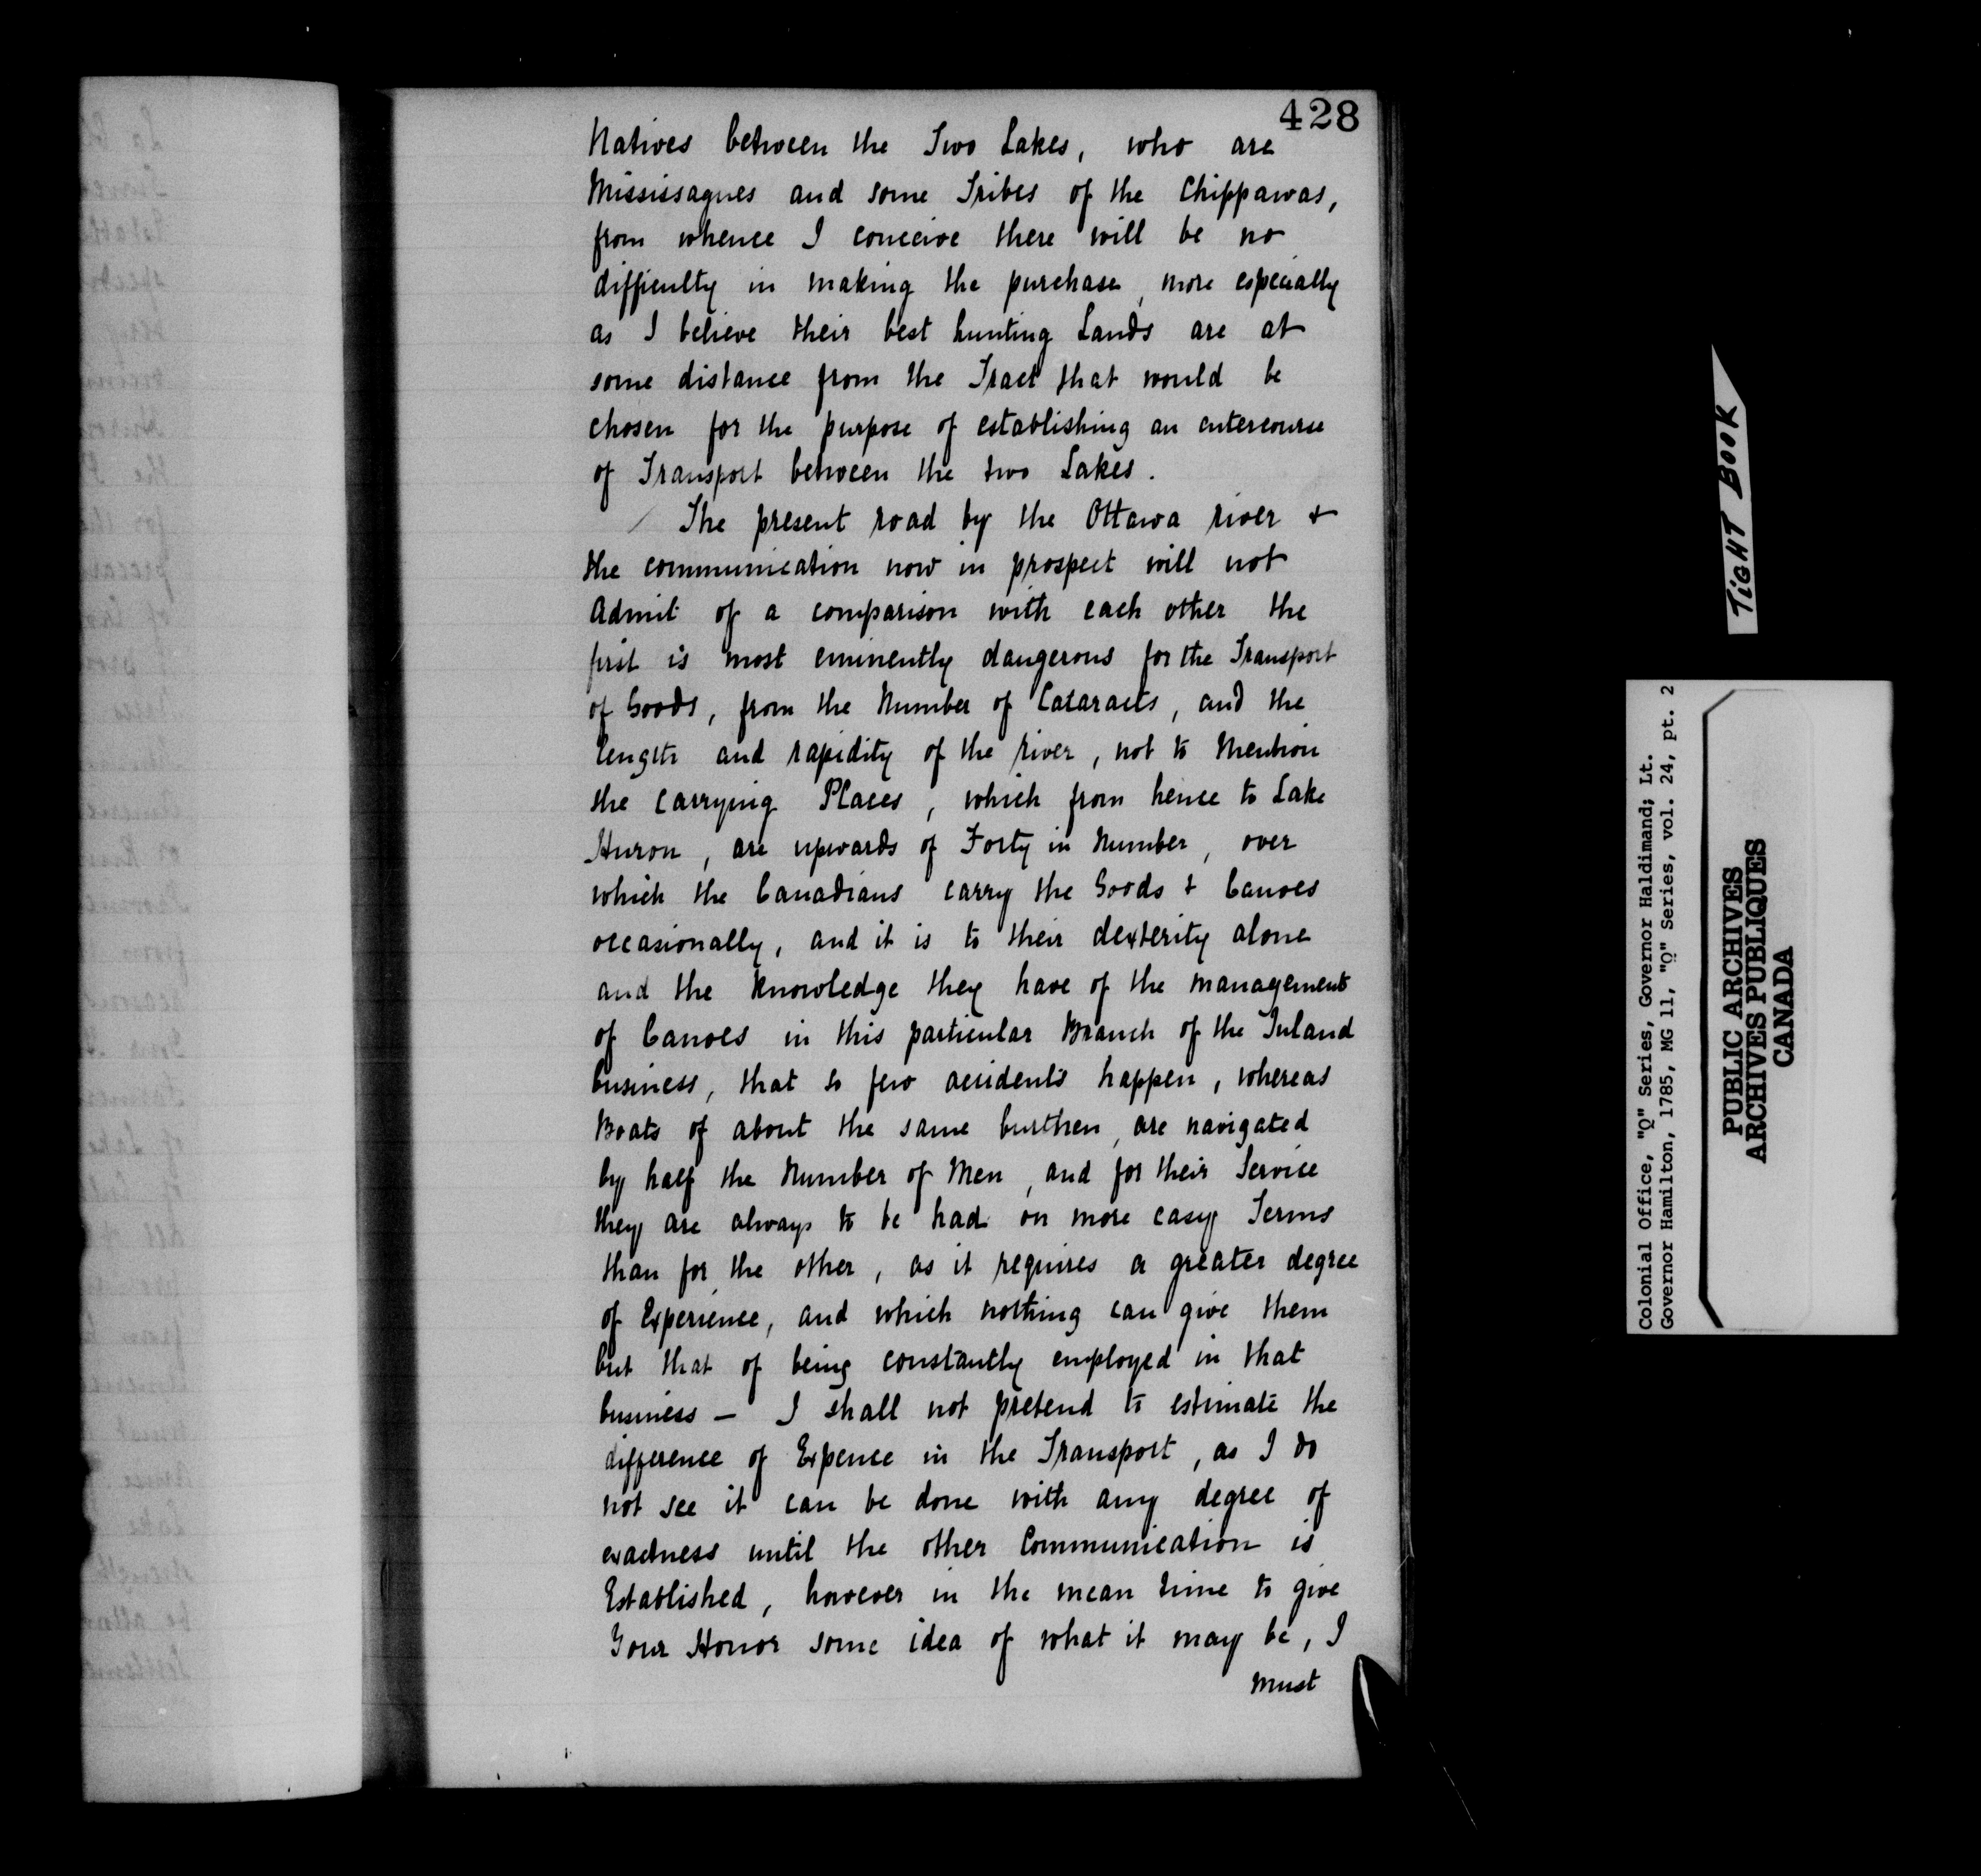 428
Natives between the Two Lakes, who are
Mississagues and some Tribes of the Chippawas,
from whence I conceive there will be no
difficulty in making the purchase, more especially
as I believe their best hunting Lands are at
some distance from the Tract that would be
chosen for the purpose of establishing an entercourse
of Transport between the two Lakes.
The present road by the Ottawa river &
the communication now in prospect will not
admit of a comparison with each other the
first is most eminently dangerous for the Transport
of Goods, from the Number of Cataracts, and the
length and rapidity of the river, not to mention
the Carrying Places, which from hence to Lake
Huron, are upwards of Forty in Number, over
which the Canadians carry the Goods & Canoes
occasionally, and it is to their dexterity alone
and the knowledge they have of the management
of Canoes in this particular Branch of the Inland
business, that so few accidents happen, whereas
Boats of about the same burthen, are navigated
by half the Number of Men, and for their Service
they are always to be had on more easy Terms
than for the other, as it requires a greater degree
of Experience, and which nothing can give them
but that of being constantly employed in that
business — I shall not pretend to estimate the
difference of Expence in the Transport, as I do
not see it can be done with any degree of
exactness until the other Communication is
Established, however in the mean time to give
Your Honor some idea of what it may be, I
must
TIGHT BOOK
Colonial Office, "Q" Series, Governor Haldimand; Lt.
Governor Hamilton, 1785, MG 11, "Q" Series, vol. 24, pt. 2
PUBLIC ARCHIVES
ARCHIVES PUBLIQUES
CANADA